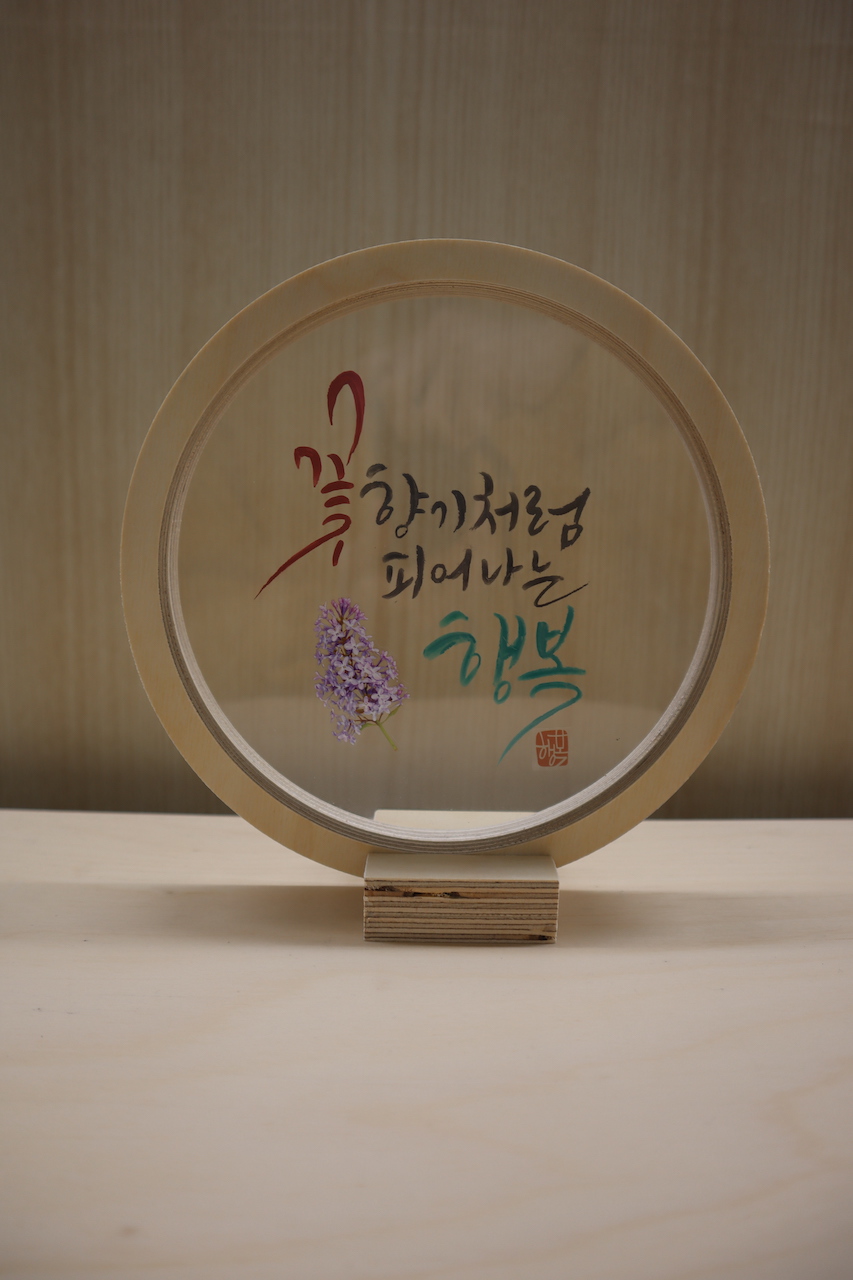 꽃향기처럼
피어나는
행복
행복